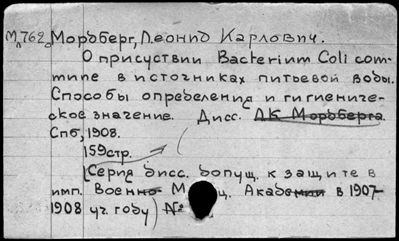 М762 Мордберг, Леонид Карлович.
О присутствии Bacterium Coli com-
mune в источниках питьевой воды.
Способы определения и гигиениче-
ское значение. Дисс. Л К Мордберга
Спб, 1908.
159 стр.
(Серия дисс. допущ. к защите в
имп. Военно М ц. Академии в 1907-
1908 уч. году) №